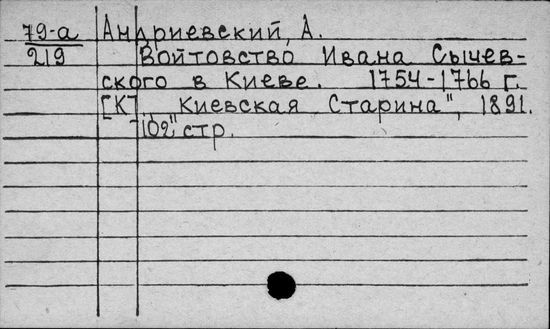 79-а Андриевский, А.
219 Войтовство Ивана Сычев-
ского в Киеве. 1754-1766 г.
[К] „Киевская Старина", 1891.
102 стр.